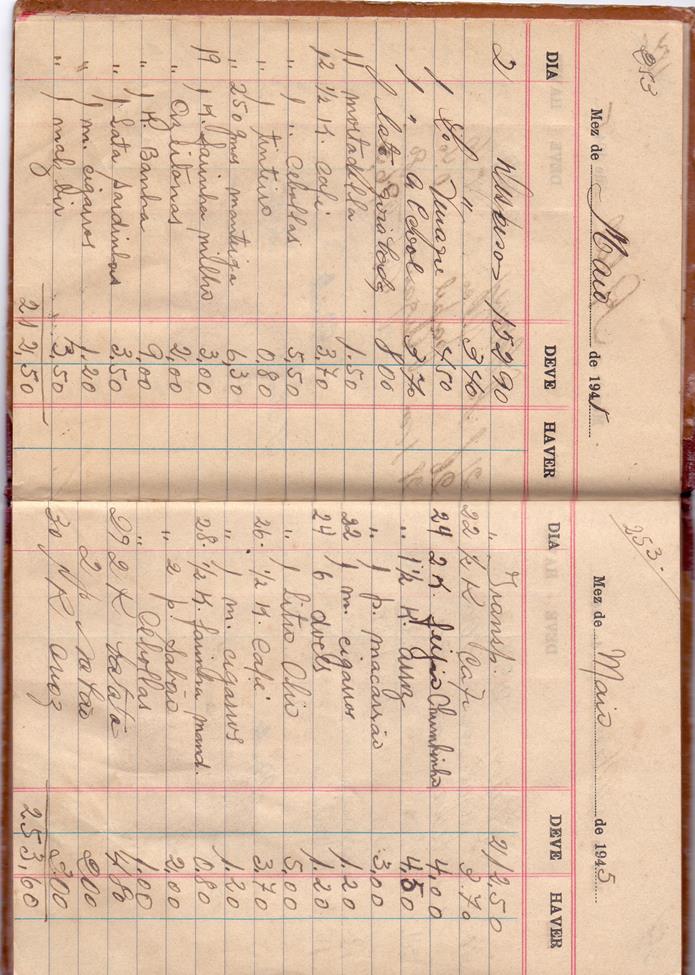 253
Mez de Maio de 1945
DIA DEVE HAVER
2 152,90
" 3,40
1 Vinagre 4,50
1 " Alcool 3,70
1 lata 8,00
11 mortadella 1.50
12 ½ K. Café 3,70
" 1 " Cebollas 5,50
" 1 tinteiro 0,80
" 250 gms manteiga 6,30
19 1 K. farinha milho 3,00
" Azeitonas 2,00
" 1 K. Banha 9,00
" 1 lata sardinhas 3.50
" 1 m. cigarros 1.20
" 1 3,50
212,50
253.
Mez de Maio de 1945
DIA DEVE HAVER
" Transp. 212.50
22 ½ K Café 3.70
24 2 K feijão Chumbinho 4,00
" 1½ K. 4,50
" 1 p. macarrão 3,00
22 1 m. cigarros 1.20
24 6 1.20
" 1 litro Olio 5,00
26. ½ K. Café 3,70
" 1 m. cigarros 1.20
28. ½ K. farinha mand. 0.80
" 2 p Sabão 2,00
" Cebollas 1.00
29 2 K batata
2 p
30 1 K Arroz
253,60